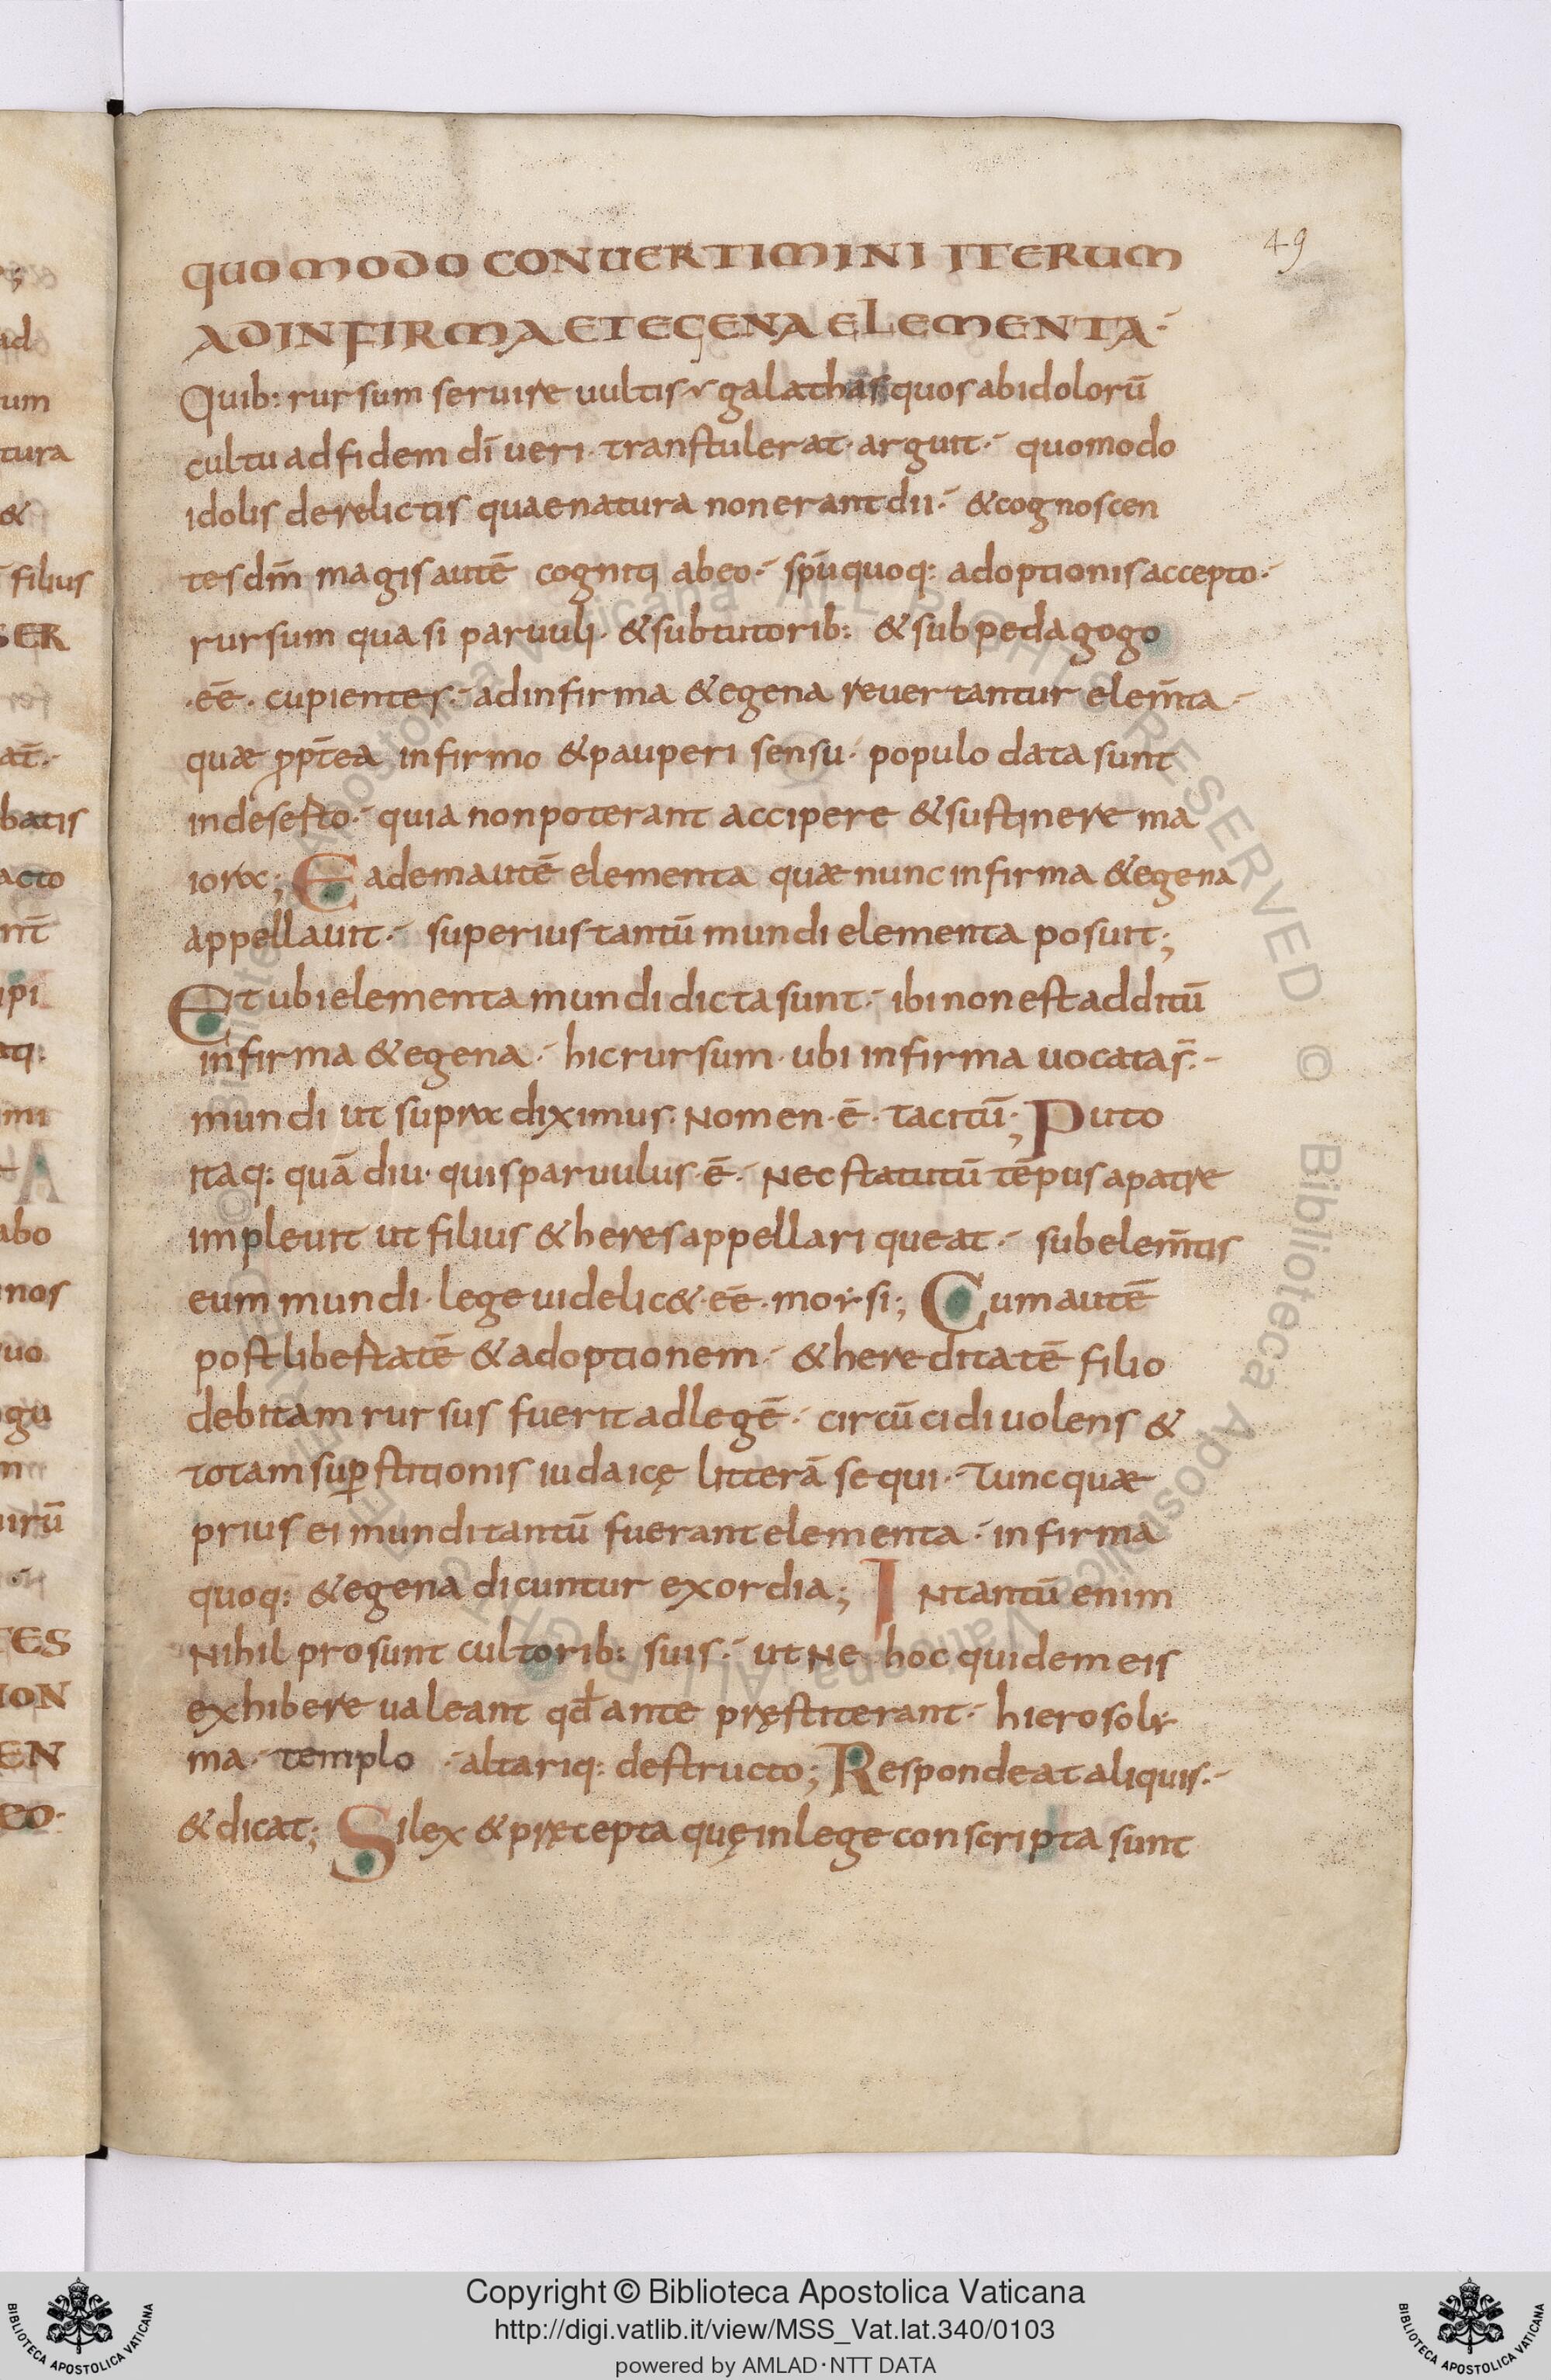 QUOMODO CONUERTIMINI ITERUM
49
AD INFIRMA ET EGENA ELEMENTA·-
Quib: rursum seruire uultis galathas quos ab idolorū
cultu ad fidem dī ueri· transtulerat· arguit·- quomodo
idolis derelictis quae natura non erant dii·- & cognoscen
tes dm̄ magis autē cogniti ab eo·- spū quoq: adoptionis accepto·-
rursum quasi paruuli· & sub tutorib: & sub pedagogo
·eē· cupientes·- ad infirma & egena reuertantur elem̄ta·-
quæ ppt̄ea infirmo & pauperi sensu· populo data sunt
in deserto·- quia non poterant accipere & sustinere ma
iora; Eadem autē elementa quæ nunc infirma & egena
appellauit·- superius tantū mundi elementa posuit;
Et ubi elementa mundi dicta sunt·- ibi non est additū
infirma & egena·- hic rursum· ubi infirma uocata s̄·-
mundi ut supra diximus· Nomen·ē· tacitū; Puto
itaq: quā diu· quis paruulus·ē· Nec statutū tēpus a patre
impleuit ut filius & heres appellari queat·- sub elem̄tis
eum mundi· lege uidelic&·eē·morsi; Cum autē
post libertatē & adoptionem·- & hereditatē filio
debitam rursus fuerit ad legē·- circūcidi uolens &
totam supstitionis iudaicę litterā sequi·- Tunc quæ
prius ei mundi tantū fuerant elementa·- infirma
quoq: & egena dicuntur exordia; INtantū enim
Nihil prosunt cultorib: suis·- ut Ne hoc quidem eis
exhibere ualeant qđ ante pręstiterant·- hierosoly
ma·- templo ·- altariq: destructo; Respondeat aliquis·-
& dicat; Si lex & pręcepta quę in lege conscripta sunt
Copyright © Biblioteca Apostolica Vaticana
http://digi.vatlib.it/view/MSS_Vat.lat.340/0103
powered by AMLAD·NTT DATA